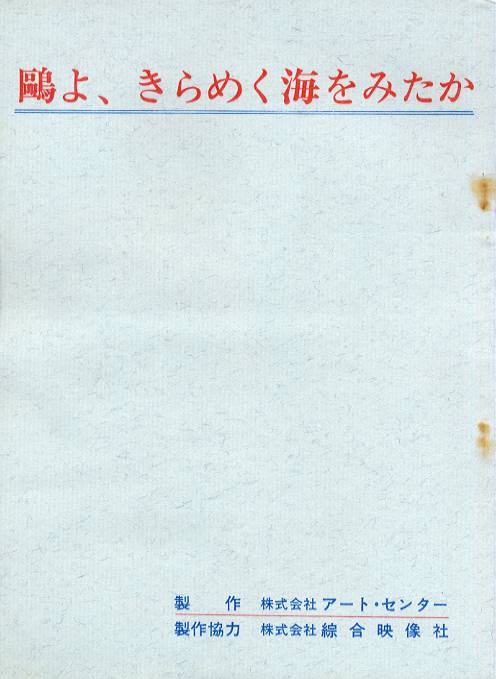 鷗よ、きらめく海をみたか
製作 株式会社 アート・センター
製作協力 株式会社 綜合映像社